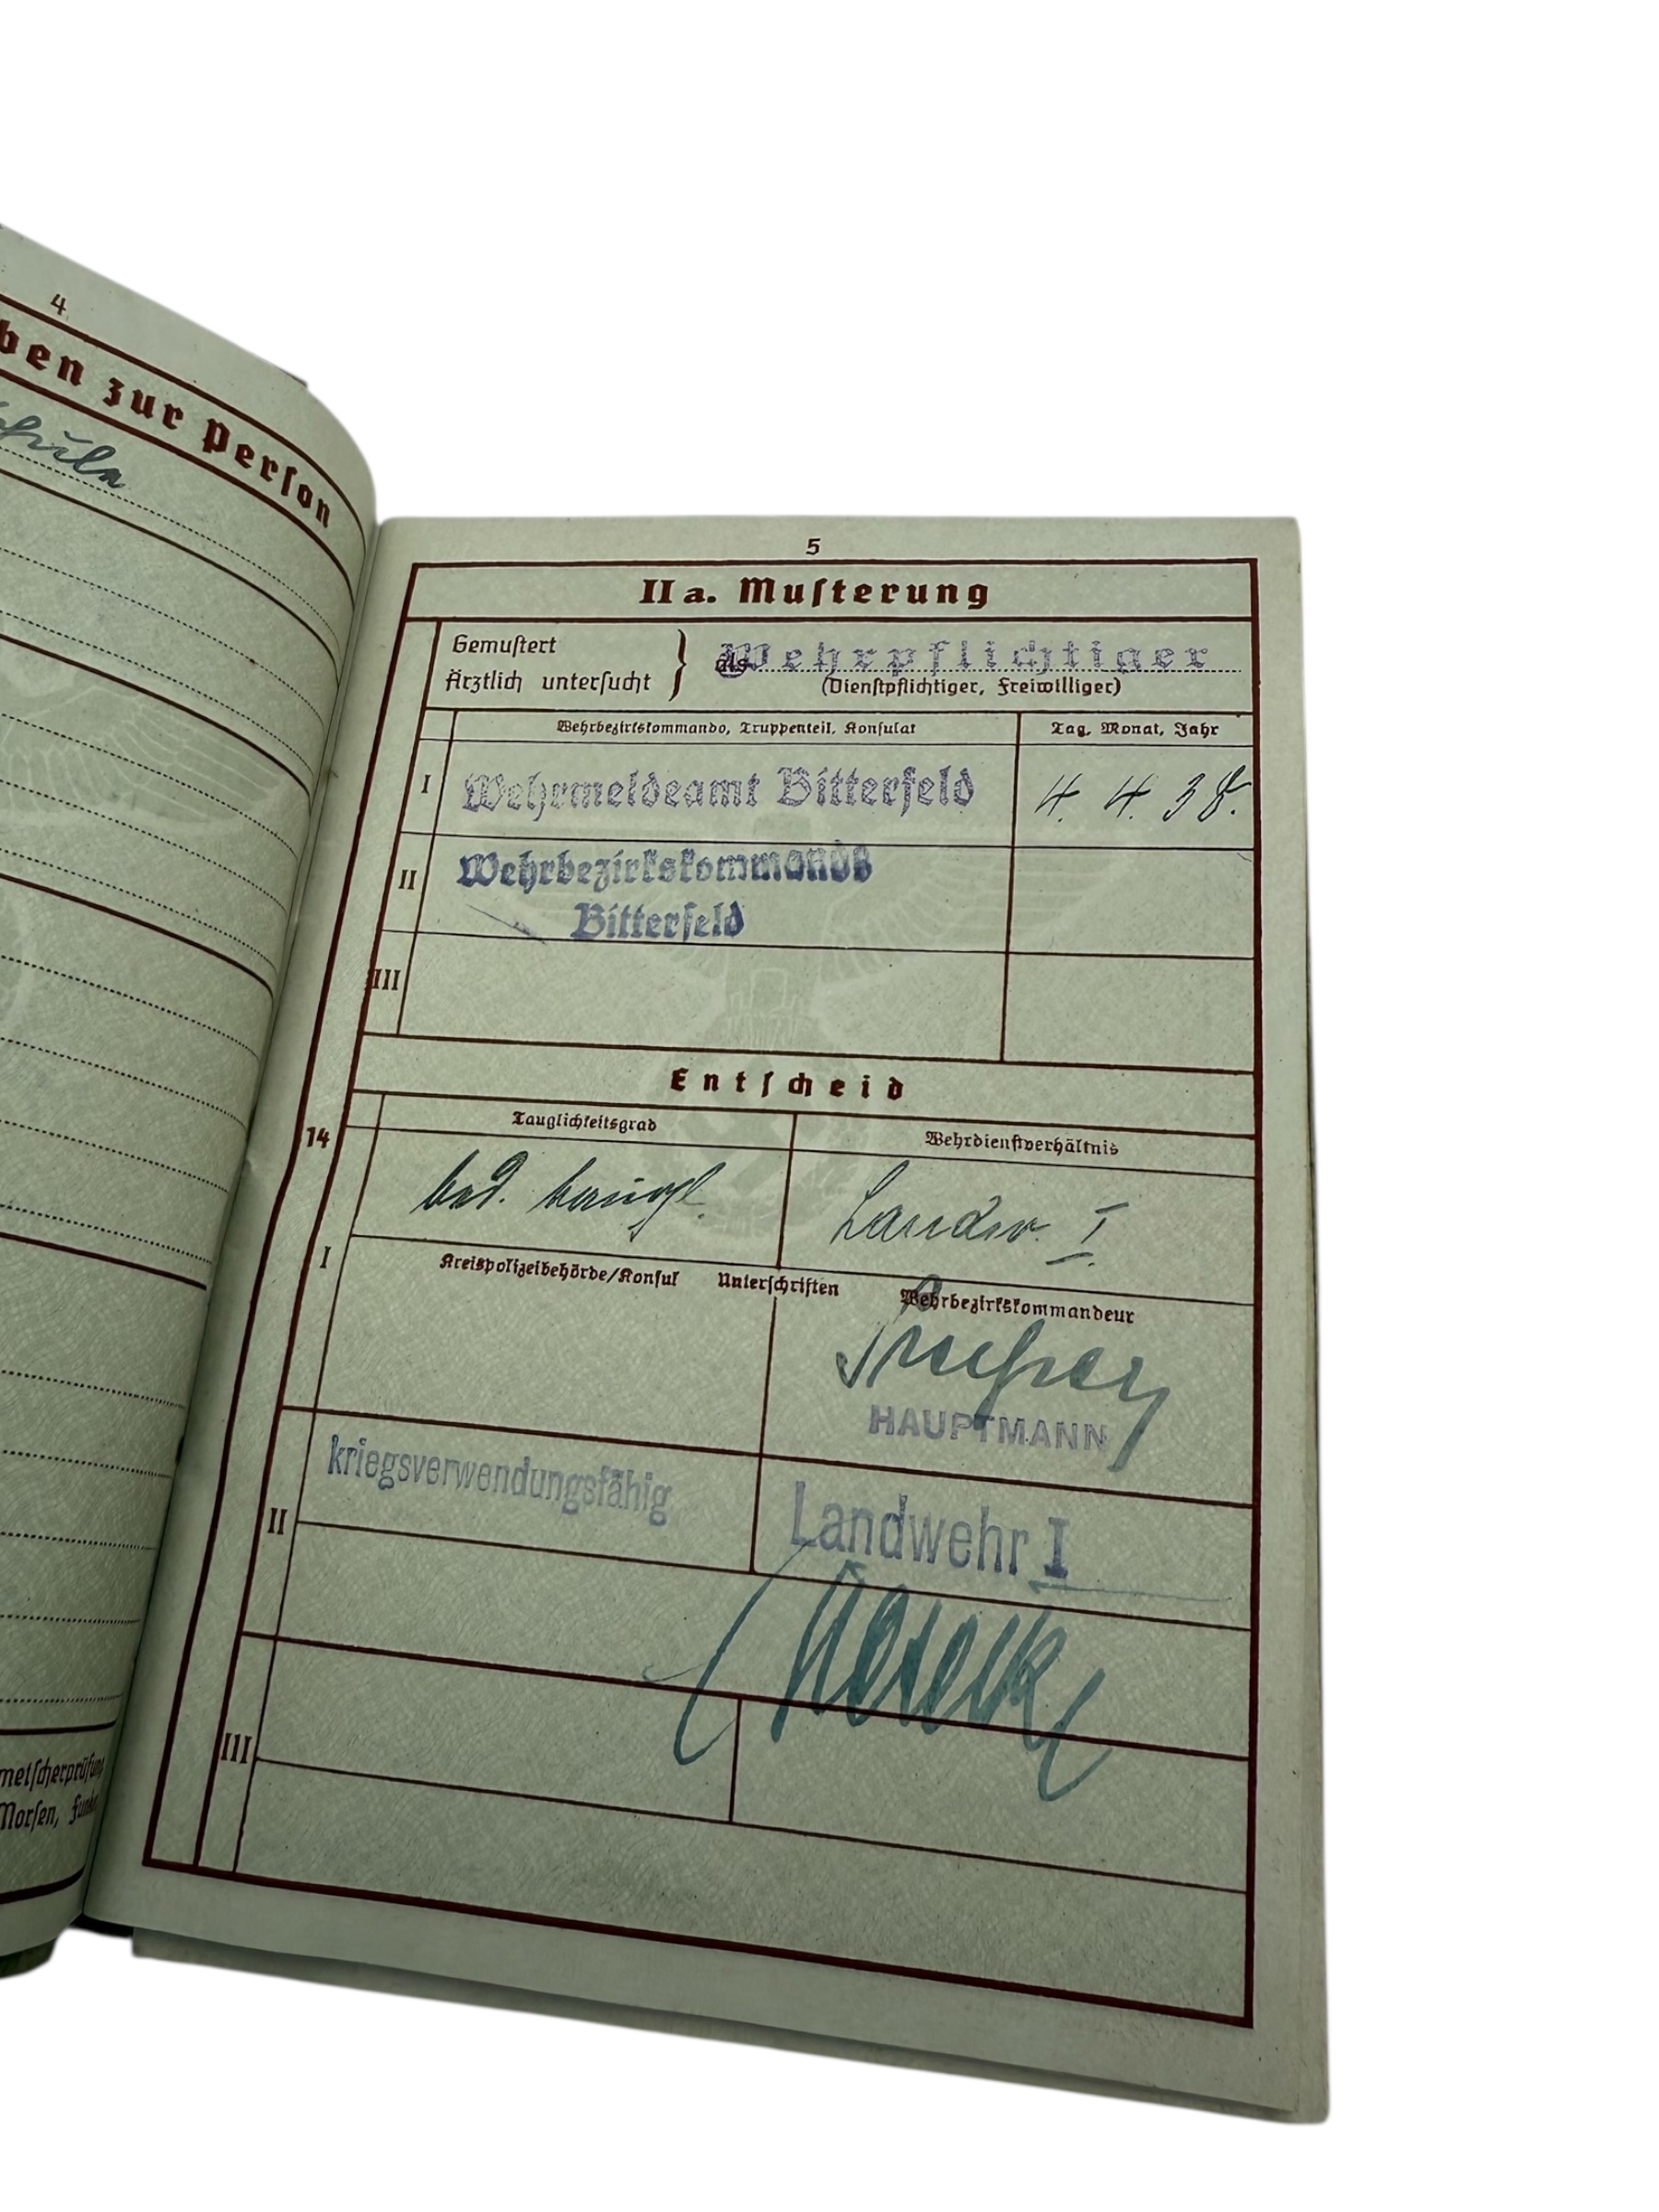 4
ben zur Person
5
II a. Muſterung
Gemuſtert
Ärztlich unterſucht
als Wehrpflichtiger
(Dienſtpflichtiger, Freiwilliger)
Wehrbezirkskommando, Truppenteil, Konſulat
Tag, Monat, Jahr
I
Wehrmeldeamt Bitterfeld
4. 4. 38.
II
Wehrbezirkskommando
Bitterfeld
III
Entſcheid
14
Tauglichkeitsgrad
Wehrdienſtverhältnis
bed. taugl.
Landw. I
I
Kreispolizeibehörde/Konſul
Unterſchriften
Wehrbezirkskommandeur
HAUPTMANN
II
kriegsverwendungsfähig
Landwehr I
III
metſcherprüfung
Morſen, Funk